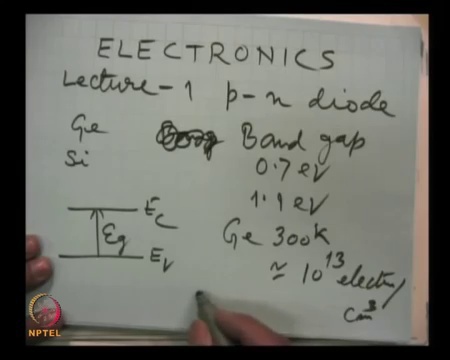 ELECTRONICS
Lecture - 1 p-n diode
Ge Band gap
Si 0.7 eV
1.1 eV
Ec
Eg
Ev
Ge 300k
≃ 10¹³ electry/
cm³
NPTEL